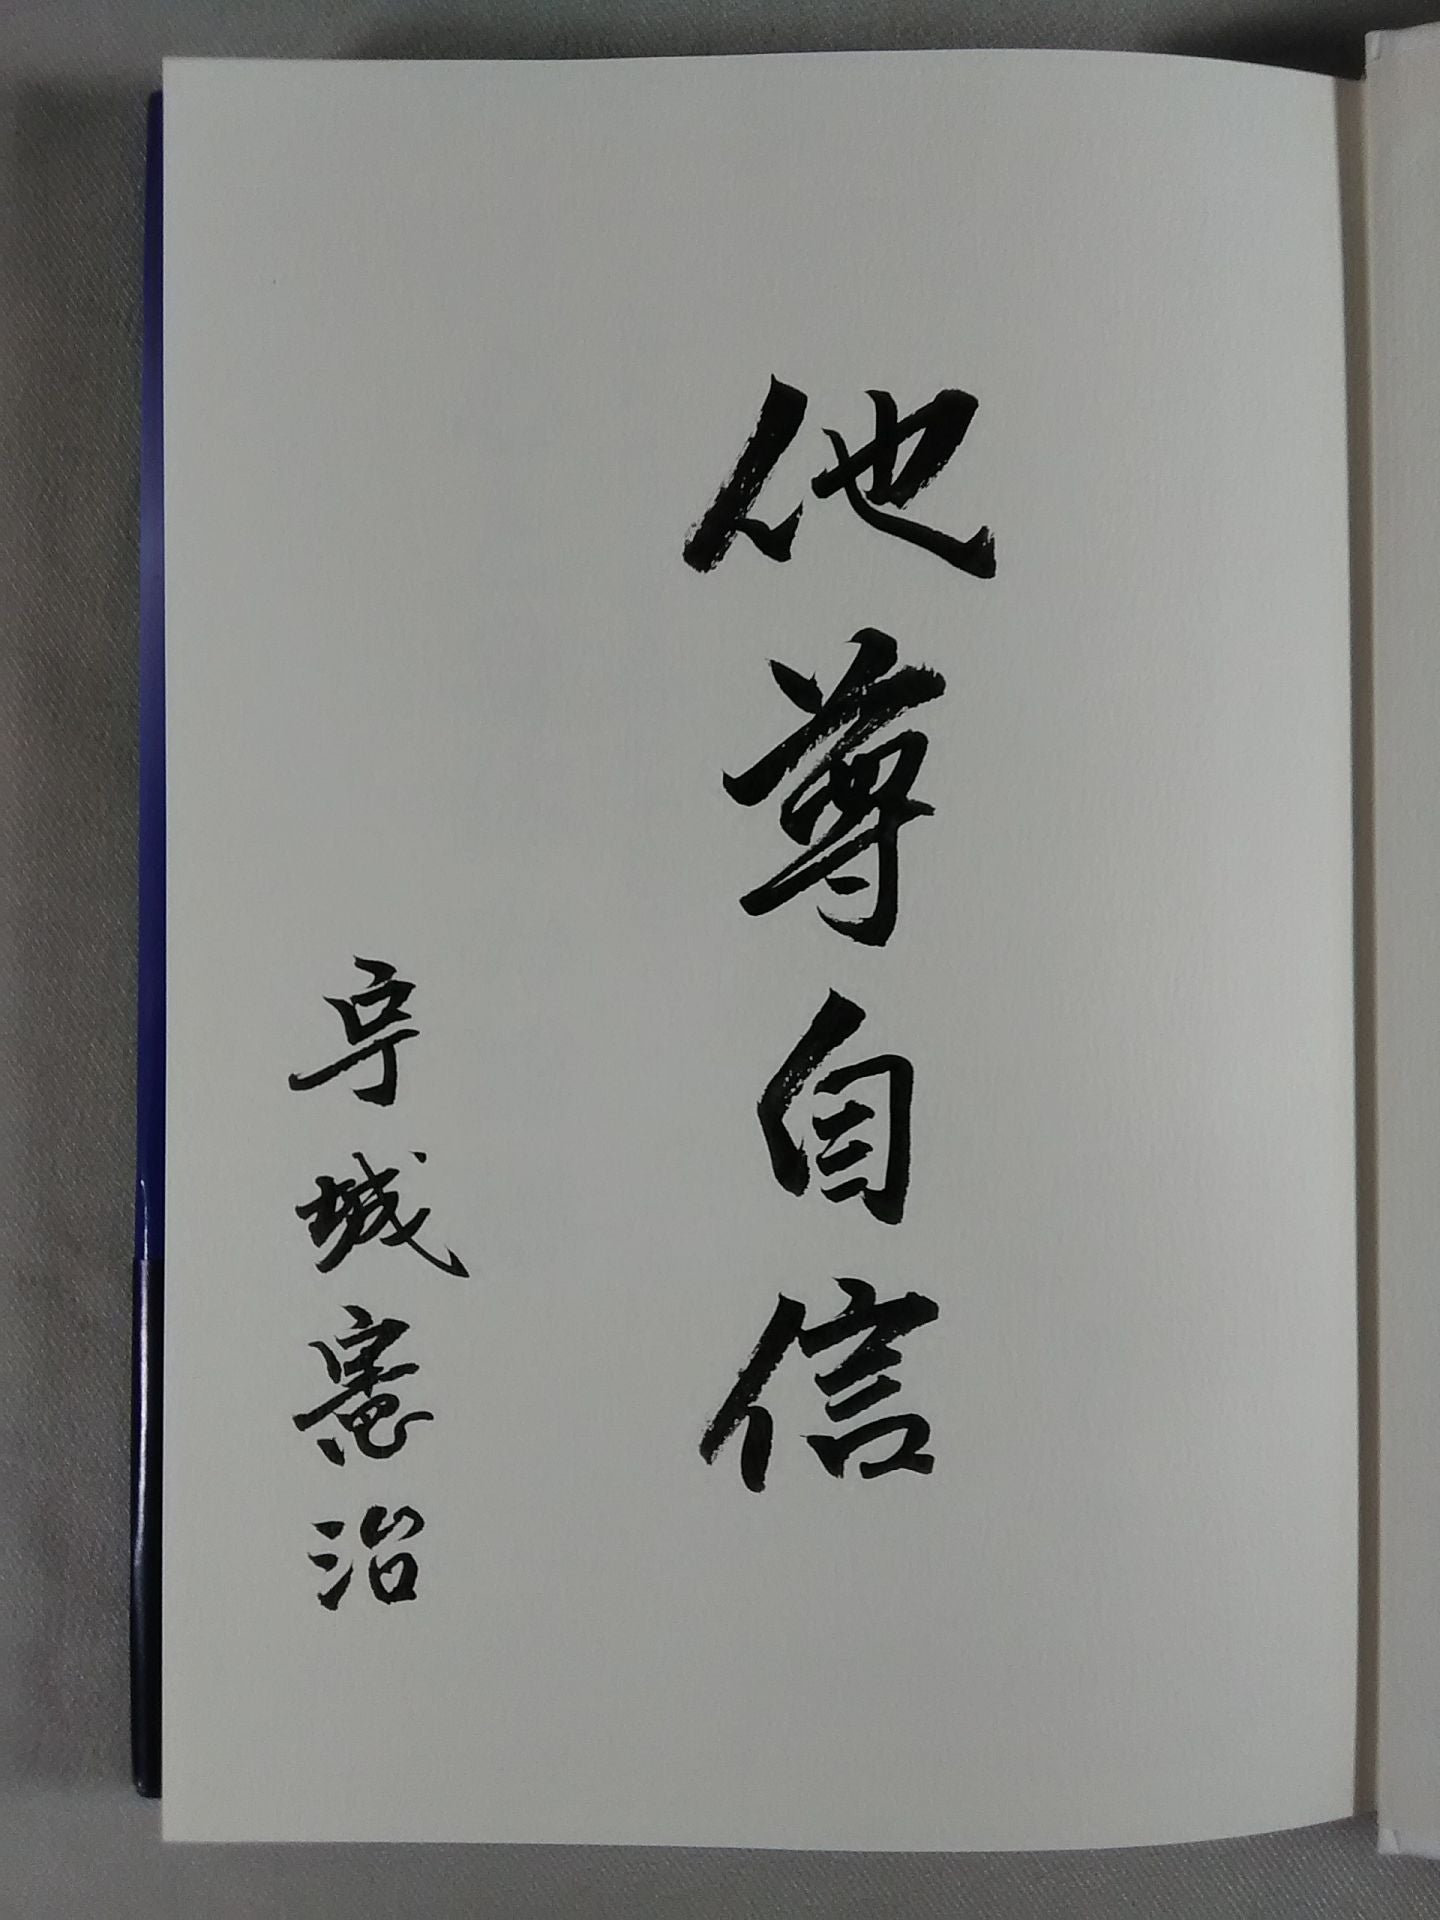 他尊自信
宇城憲治